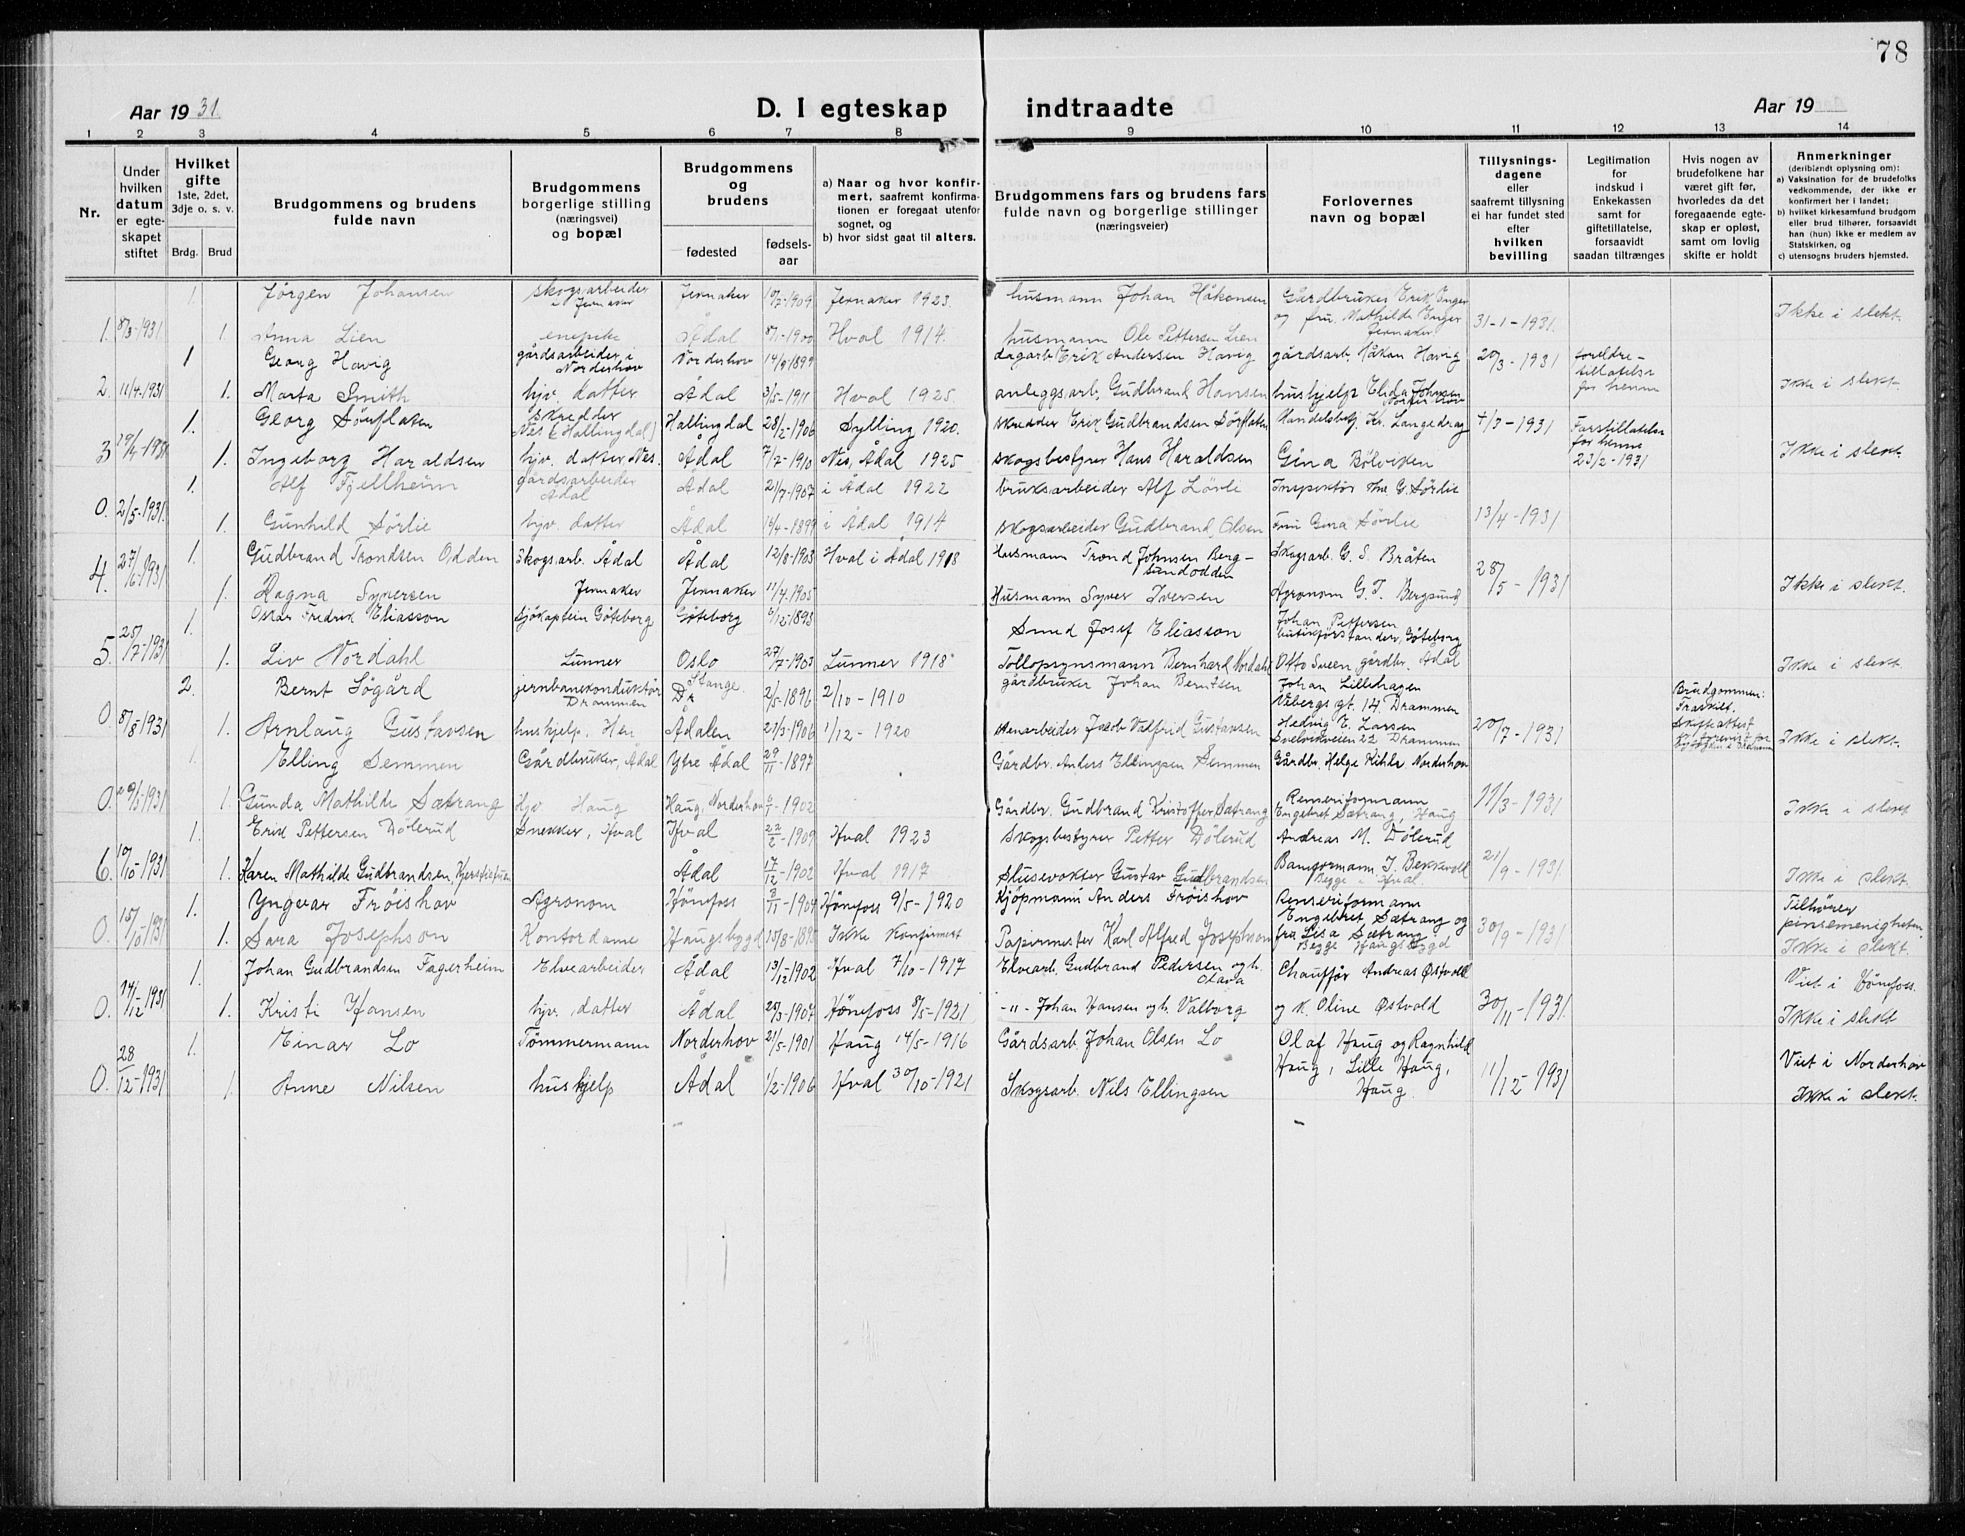 78
Aar 1931.
D. I egteskap indtraadte
Aar 19
1 2 3 4 5 6 7 8 9 10 11 12 13 14
Nr.
Under hvilken datum er egteskapet stiftet
Hvilket gifte 1ste, 2det, 3dje o. s. v.
Brdg. Brud
Brudgommens og brudens fulde navn
Brudgommens borgerlige stilling (næringsvei) og bopæl
Brudgommens og brudens
fødested
fødsels-aar
a) Naar og hvor konfirmert, saafremt konfirmationen er foregaat utenfor sognet, og
b) hvor sidst gaat til alters.
Brudgommens fars og brudens fars fulde navn og borgerlige stillinger (næringsveier)
Forlovernes navn og bopæl
Tillysnings-dagene eller saafremt tillysning ei har fundet sted efter hvilken bevilling
Legitimation for indskud i Enkekassen samt for giftetillatelse, forsaavidt saadan tiltrænges
Hvis nogen av brudefolkene har været gift før, hvorledes da det foregaaende egteskap er opløst, samt om lovlig skifte er holdt
Anmerkninger (deriblandt oplysning om):
a) Vaksination for de brudefolks vedkommende, der ikke er konfirmert her i landet;
b) hvilket kirkesamfund brudgom eller brud tilhører, forsaavidt han (hun) ikke er medlem av Statskirken, og
c) utensogns bruders hjemsted.
1. Jørgen Johansen skogsarbeider i Jevnaker Jevnaker 10/7-1909 Jevnaker 1923. husmann Johan Håkensen Gårdbruker Erik Enger og fru Mathilde Enger Jevnaker
1. 8/3-1931 1. Anna Lien Ådal 8/1-1900 Hval 1914. husmann Ole Pettersen Lien 31-1-1931. Ikke i slekt.
1 Georg Havig gårdsarbeider i Norderhov Norderhov 14/9 1899 dagarb. Erik Andersen Havig gårdsarb. Håkan Havig 20/3-1931 foreldretillatelse for henne
2. 11/4-1931 1. Marta Smith hjv. datter Ådal 3/5-1911 Hval 1925. anleggsarb. Gudbrand Hansen hushjelp Elida Johnsen Norderhov Ikke i slekt.
1. Georg Sørflaten skredder Nes (Hallingdal) Hallingdal 28/2-1906 Sylling 1920. skredder Erik Gudbrandsen Sørflaten Handelsbetj. Kr. Langedrag 4/3-1931 Farstillatelse for henne 23/2-1931
3 1. Ingeborg Haraldsen hjv. datter, Nes. Ådal 7/7-1910 Nes, Ådal 1925 skogsbestyrer Hans Haraldsen Gina Bölviken Ikke i slekt.
1. Alf Fjellheim gårdsarbeider Ådal Ådal 21/7-1907 i Ådal 1922 bruksarbeider Alf Lövli Inspektør G. Sørlie
0. 2/5-1931. 1. Gunhild Sørlie hjv. datter Ådal i Ådal 1914 skogsarbeider Gudbrand Olsen Fru Gina Sørlie 13/4-1931
1. Gudbrand Trondsen Odden Skogsarb. Ådal Ådal 12/8-1903 Hval i Ådal 1918 Husmann Trond Johnsen Bergsundodden Skogsarb. G. S. Bråten
4. 27/6-1931 1. Ragna Syversen Jevnaker Jevnaker 11/4-1905 Husmann Syver Iversen Agronom G. T. Bergsund 28/5-1931 Ikke i slekt.
1. Oskar Fredrik Eliasson sjökaptein Göteborg Göteborg 6/12-1893 Smed Josef Eliasson Johan Pettersen butikførstander, Göteborg
5. 25/7-1931 1. Liv Nordahl Lunner Oslo 27/7-1903 Lunner 1918 Tollopsynsmann Bernhard Nordahl Otto Sveen, gårdbr. Ådal Ikke i slekt.
2. Bernt Søgård jernbanekonduktør Drammen Stange 2/5-1896 2/10-1910 gårdbruker Johan Berntsen Johan Lillehagen gt. 14. Drammen Brudgommen: Fraskilt.
0. 8/8-1931 1. Arnlaug Gustavsen hushjelp. Hen Ådalen 21/3-1906 1/12-1920 Jakob Valfrid Gustavsen Hedvig E. Larsen Svelvikveien 22 Drammen 20/7-1931 Ikke i slekt.
1. Elling Semmen Gårdbruker, Ådal Ytre Ådal 29/11-1897 Gårdbr. Anders Ellingsen Semmen Gårdbr. Helge Kihle Norderhov
0. 1. Gunda Mathilde Sætrang Hjv. Haug Haug, Norderhov 6/1-1902 Gårdbr. Gudbrand Kristoffer Sætrang Renseriformann Engebret Sætrang, Haug 11/3-1931 Ikke i slekt
1. Erik Pettersen Dölerud Snekker, Hval Hval 22/2-1909 Hval 1923 Skogsbestyrer Petter Dölerud Andreas M. Dölerud
6. 10/10-1931 1. Karen Mathilde Gudbrandsen, Ådal 17/12-1902 Hval 1917 Slusevokter Gustav Gudbrandsen Banformann J. Bekkvold Begge i Hval. 21/9-1931. Ikke i slekt.
1. Yngvar Frøishov Agronom Hønefoss 8/11-1904 Hønefoss 9/5-1920 Kjöpmann Anders Frøishov Renseriformann Engebret Sætrang og fru Lisa Sætrang Begge Haugsbygd Tilhører pinsemenigheten.
0. 15/10-1931 1. Sara Josephson Kontordame Haugsbygd Ikke konfirmert Papirmester Karl Alfred Josephson 30/9-1931 Ikke i slekt.
1. Johan Gudbrandsen Fagerheim Elvearbeider Ådal 13/12-1902 Hval 7/10-1917 Elvearb. Gudbrand Pedersen og h. Olava Chauffør Andreas Østvold Viet i Hønefoss.
0. 14/12-1931 1. Kristi Hansen hjv. datter Ådal 25/3-1907 Hønefoss 8/5-1921 -"- Johan Hansen og h. Valborg og k. Oline Østvold 30/11-1931. Ikke i slekt
1. Einar Lo Tömmermann Norderhov 21/5-1901 Haug 14/5-1916 Gårdsarb. Johan Olsen Lo Olaf Haug og Ragnhild Haug, Lille Haug, Haug. Viet i Norderhov
0. 28/12-1931 1. Anne Nilsen hushjelp Ådal 1/2-1906 Hval 30/10-1921 Skogsarb. Nils Ellingsen 11/12-1931 Ikke i slekt.